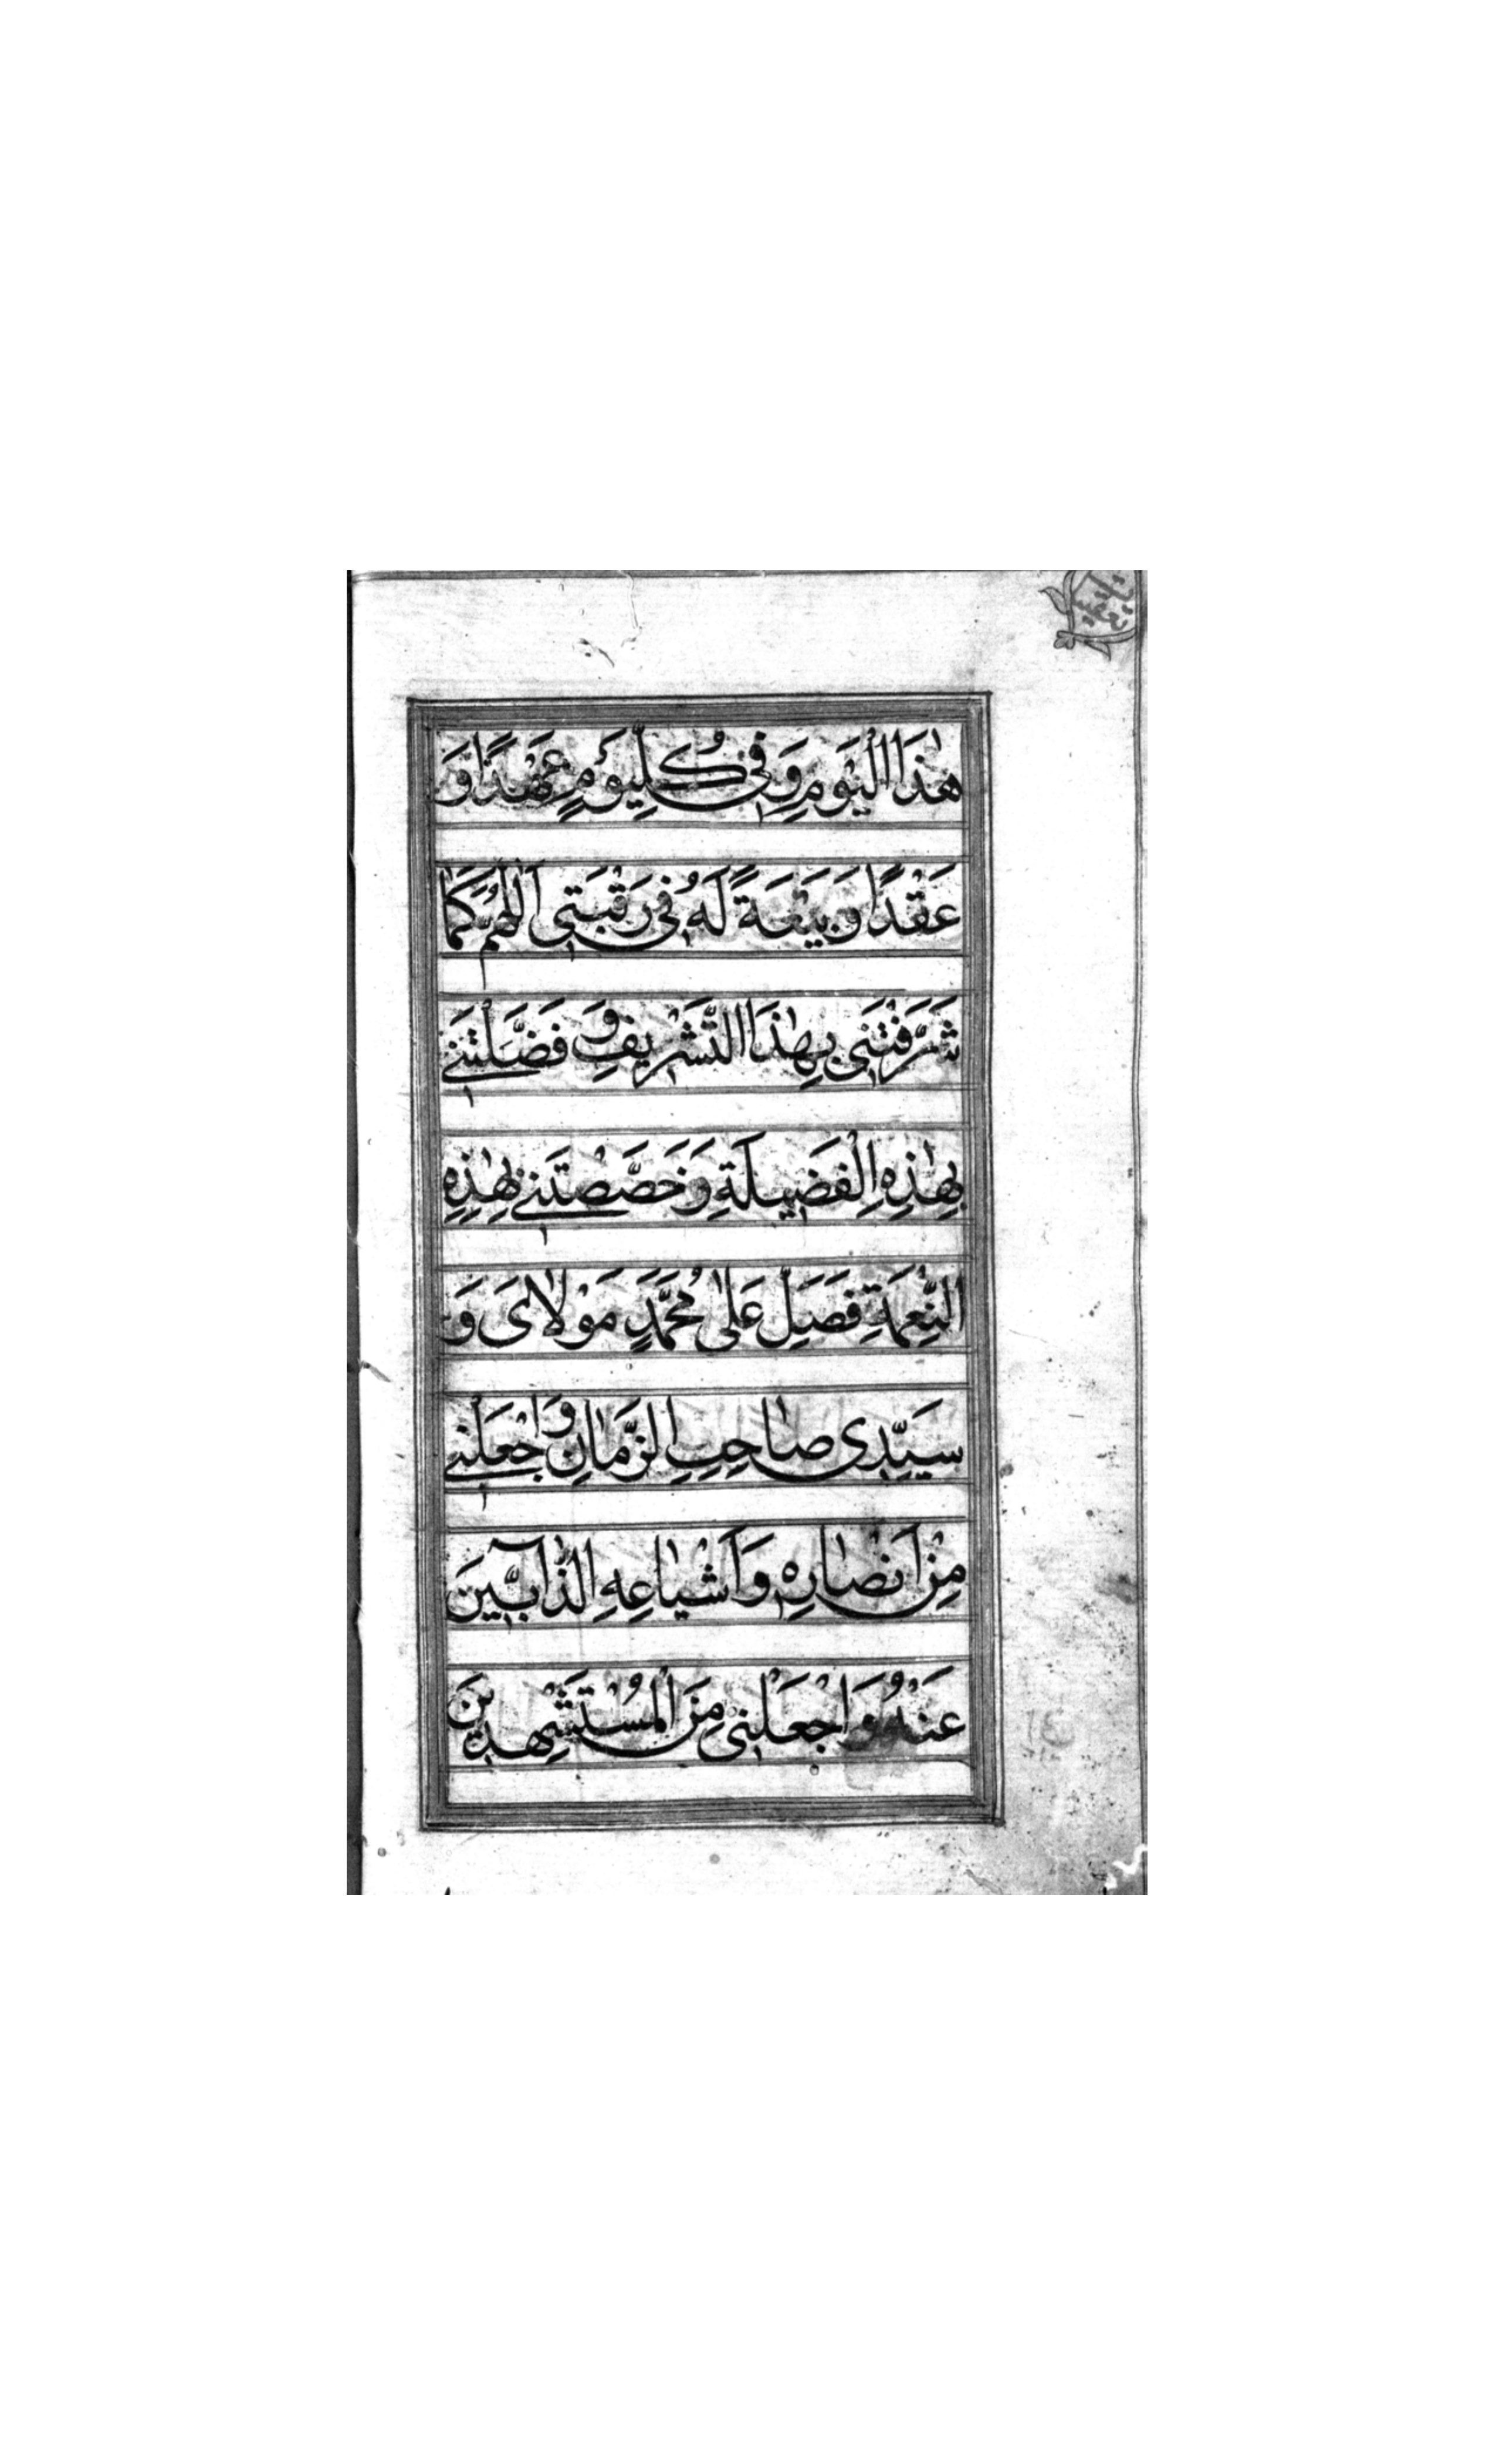 هٰذَا الْيَوْمِ وَفِي كُلِّ يَوْمٍ عَهْدًا وَ
عَقْدًا وَبَيْعَةً لَهُ فِي رَقَبَتِي اَللّٰهُمَّ كَمَا
شَرَّفْتَنِي بِهٰذَا التَّشْرِيفِ وَ فَضَّلْتَنِي
بِهٰذِهِ الْفَضِيلَةِ وَخَصَّصْتَنِي بِهٰذِهِ
النِّعْمَةِ فَصَلِّ عَلٰى مُحَمَّدٍ مَوْلَاىَ وَ
سَيِّدِى صَاحِبِ الزَّمَانِ وَاجْعَلْنِي
مِنْ اَنْصَارِهِ وَاَشْيَاعِهِ الذَّآبِّينَ
عَنْهُ وَاجْعَلْنِى مِنَ الْمُسْتَشْهِدِينَ